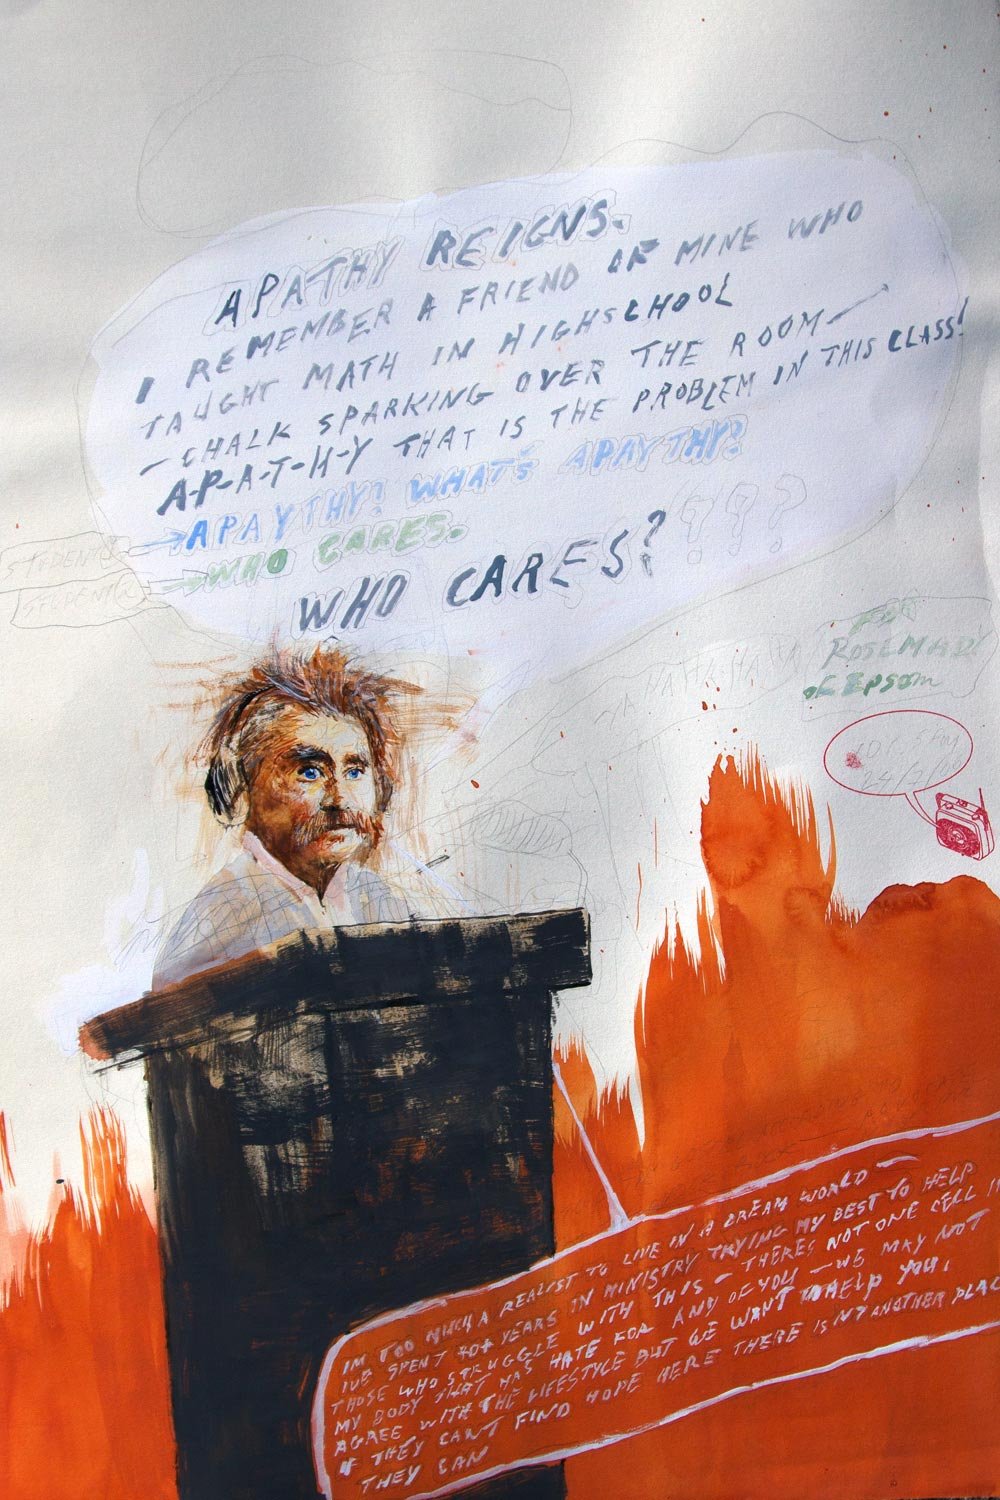 APATHY REIGNS.
I REMEMBER A FRIEND OF MINE WHO
TAUGHT MATH IN HIGHSCHOOL
- CHALK SPARKING OVER THE ROOM -
A-P-A-T-H-Y THAT IS THE PROBLEM IN THIS CLASS!
APAYTHY? WHAT'S APAYTHY?
WHO CARES.
WHO CARES? ???
STUDENT
STUDENT 2
FOR
ROSEMAD
OF EPSOM
24/7/00
IM TOO MUCH A REALIST TO LIVE IN A DREAM WORLD -
IVE SPENT 40+ YEARS IN MINISTRY TRYING MY BEST TO HELP
THOSE WHO STRUGGLE WITH THIS - THERES NOT ONE CELL IN
MY BODY THAT HAS HATE FOR ANY OF YOU - WE MAY NOT
AGREE WITH THE LIFESTYLE BUT WE WANT TO HELP YOU.
IF THEY CANT FIND HOPE HERE THERE IS NT ANOTHER PLAC
THEY CAN